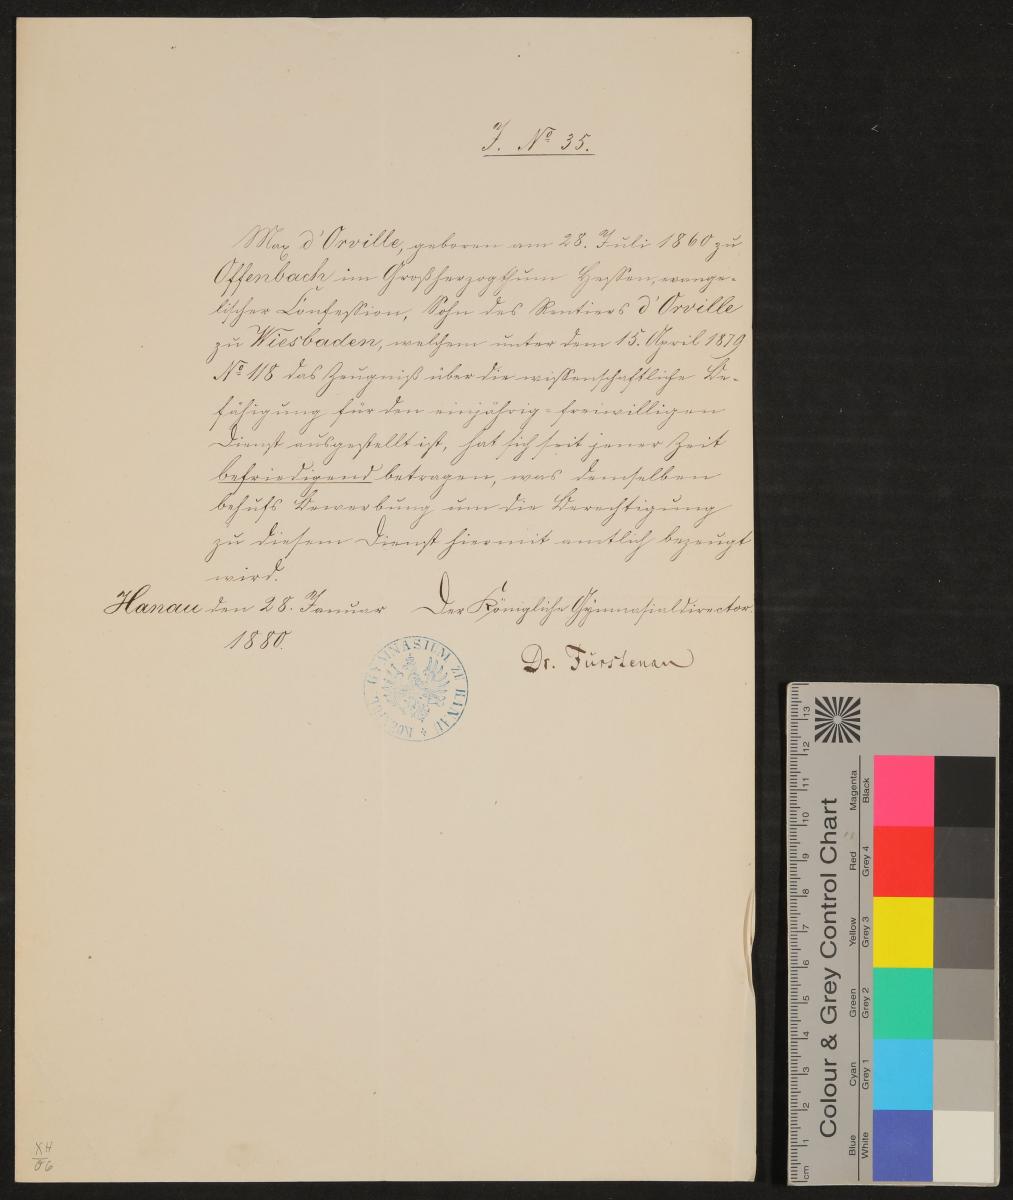 J. No 35.
Max d'Orville, geboren am 28. Juli 1860 zu
Offenbach im Großherzogthum Hessen, evange-
lischer Confession, Sohn des Rentiers d'Orville
zu Wiesbaden, welchem unter dem 15. April 1879
No 118 das Zeugniß über die wissenschaftliche Be-
fähigung für den einjährig-freiwilligen
Dienst ausgestellt ist, hat sich seit jener Zeit
befriedigend betragen, was demselben
behufs Bewerbung um die Berechtigung
zu diesem Dienst hiermit amtlich bezeugt
wird.
Hanau den 28. Januar Der Königliche Gymnasialdirector.
1880.
Dr. Fürstenau
GYMNASIUM ZU HANAU
XH
06
Colour & Grey Control Chart
Blue Cyan Green Yellow Red Magenta
White Grey 1 Grey 2 Grey 3 Grey 4 Black
cm 1 2 3 4 5 6 7 8 9 10 11 12 13